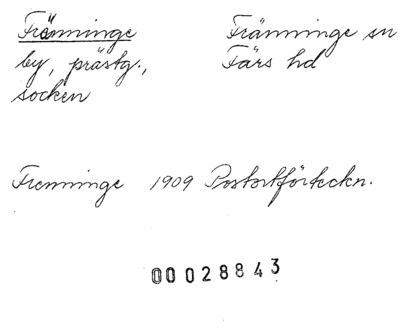 Fränninge Fränninge sn
by, prästg., Färs hd
socken
Frenninge 1909 Postortförteckn.
00028843